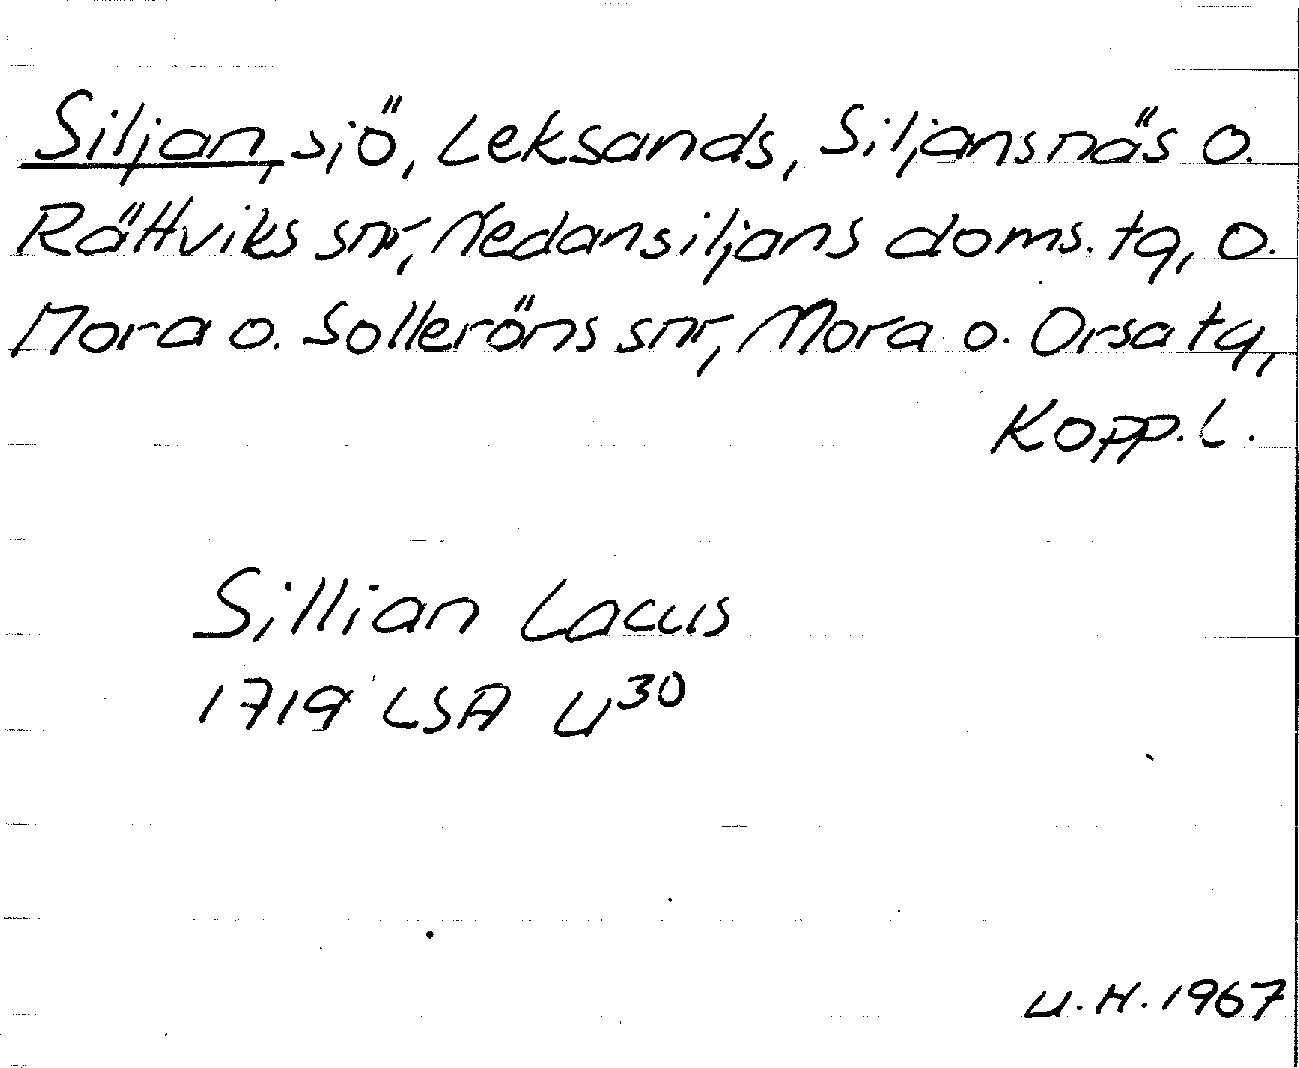 Siljan, sjö, Leksands, Siljansnäs o.
Rättviks snr, Nedansiljans doms. tg, o.
Mora o. Solleröns snr, Mora o. Orsa tg,
Kopp. l.
Sillian Lacus
1719 LSA U³⁰
U.H. 1967